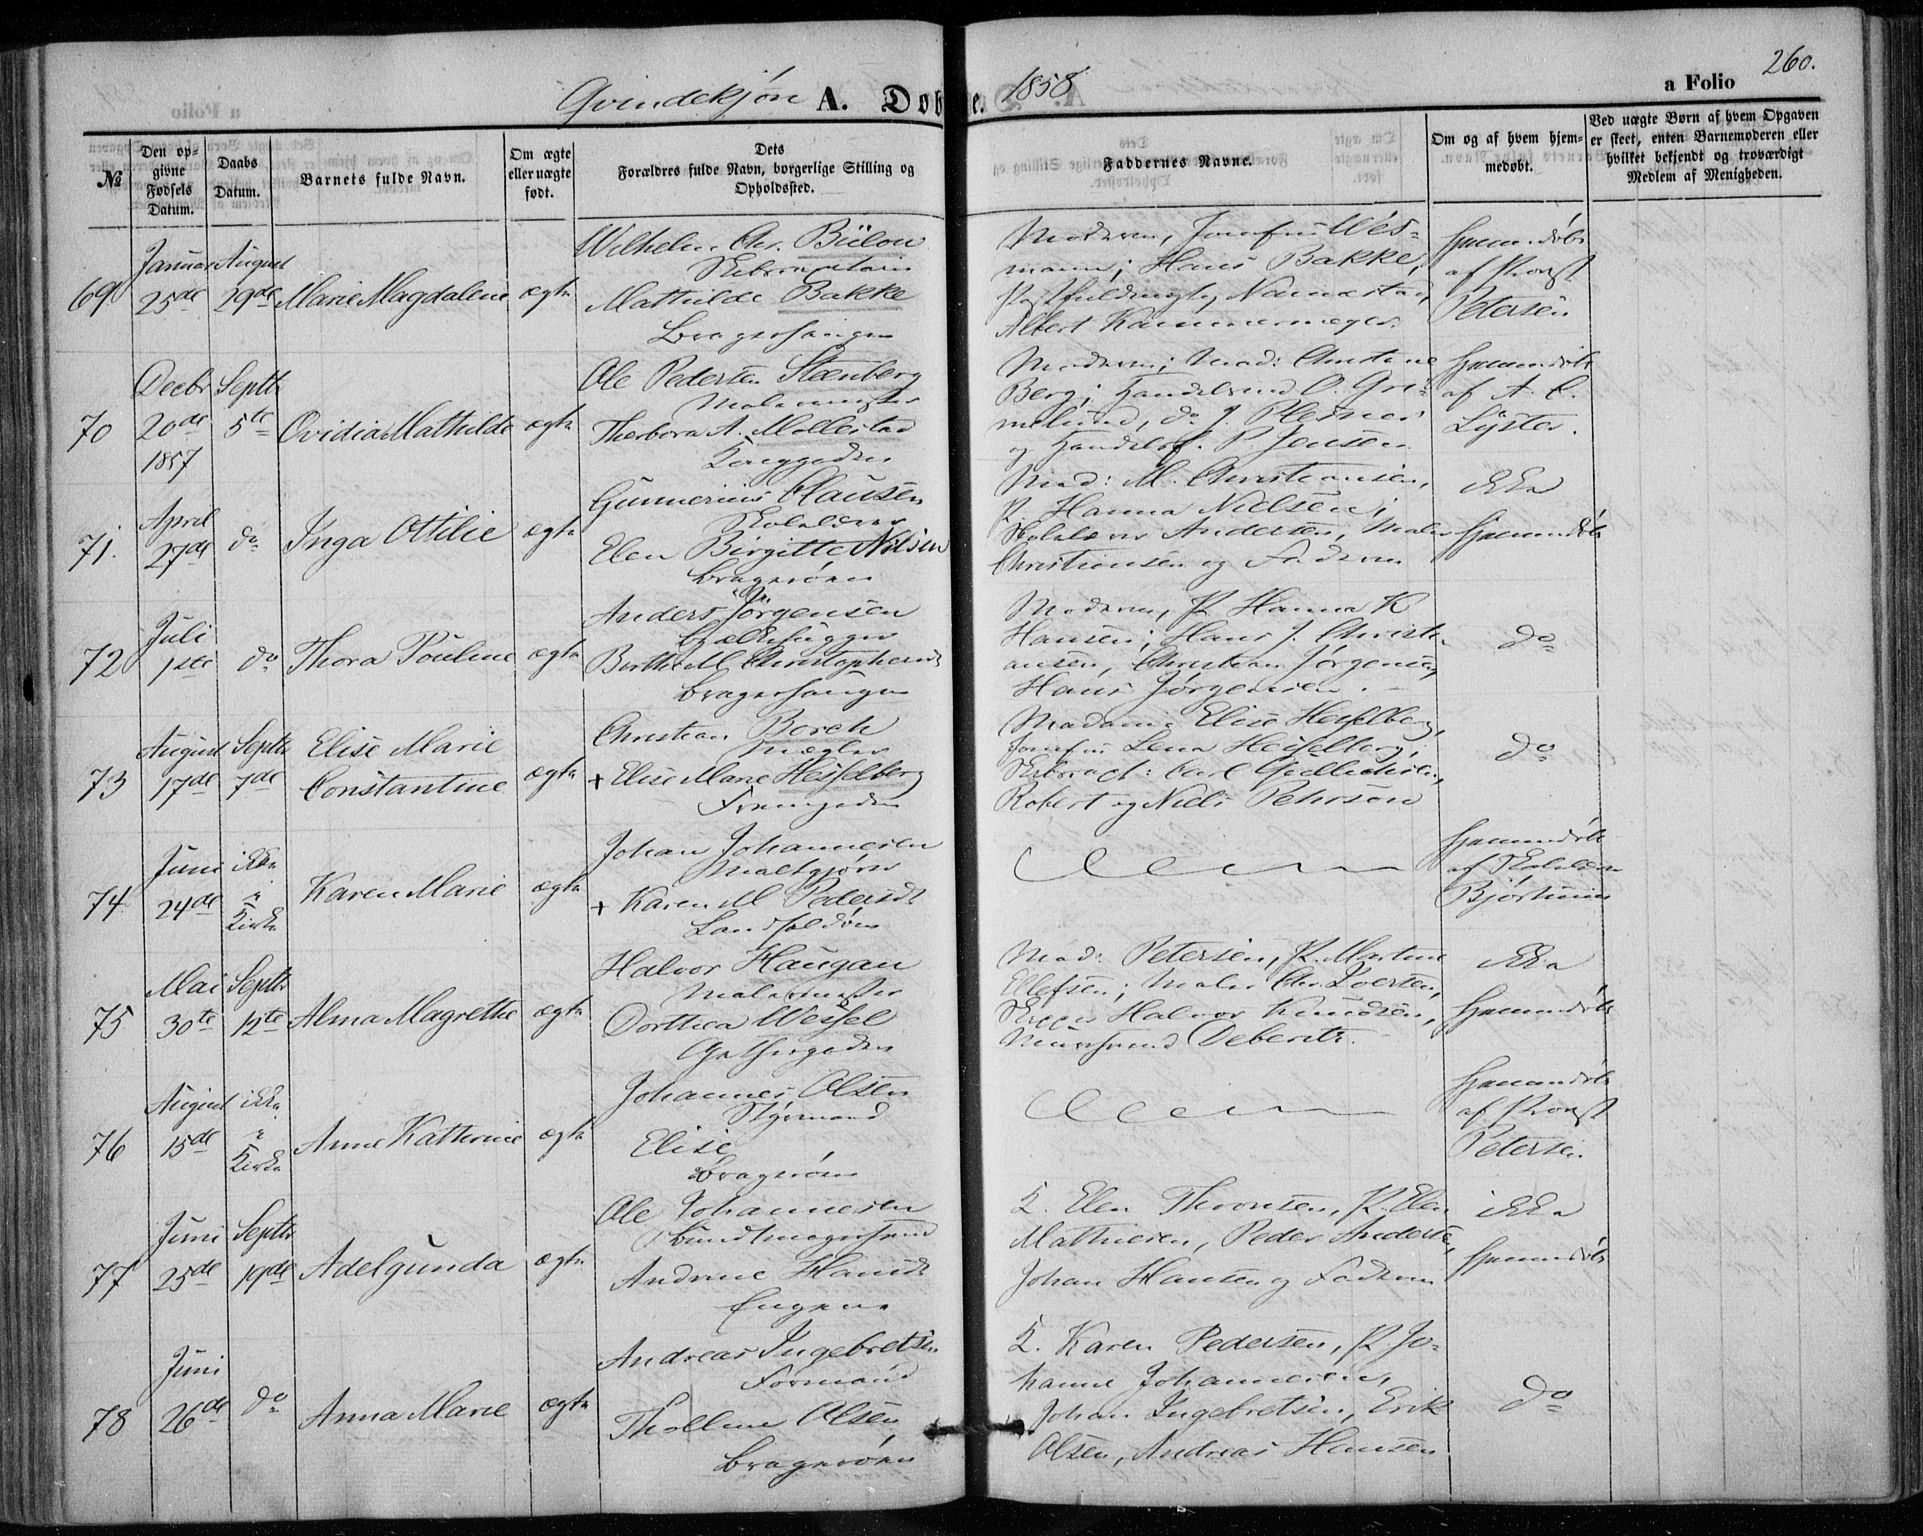 Qvindekjøn A. Døbte. 1858 a Folio 260.
№
Den opgivne Fødsels Datum.
Daabs Datum.
Barnets fulde Navn.
Om ægte eller uægte født.
Dets Forældres fulde Navn, borgerlige Stilling og Opholdssted.
Faddernes Navne.
Om og af hvem hjemmedøbt.
Ved uægte Børn af hvem Opgaven er skeet, enten Barnemoderen eller hvilket bekjendt og troværdigt Medlem af Menigheden.
69
Januar 25de
August 29de
Marie Magdalene
ægte
Wilhelm Chr. Bülow
Skibscaptain
Mathilde Bakke
Moderen, Jomfru Wes-
mann; Hans Bakke,
Albert Kammermeyer.
Hjemmedøbt
af Provst
Petersen
70
Decbr 20de 1857
Septbr 5te
Ovidia Mathilde
ægte
Ole Pedersen Steenberg
Malermester
Thorbora A. Mollestad
Moderen; Mad: Christiane
Berg; Handelsmd O. Gre-
melund, do J. Plesner
og Handelsf. P Jensen
Hjemmedøbt
af A. C.
Lyster.
71.
April 27de
do
Inga Ottilie
ægte
Gunnerius Clausen
Skolelærer
Elen Birgitte Nilsen
Bragerøen
Mad: M. Christiansen,
P. Hanna Nielsen;
Skolelærer Andersen, Maler
Christiansen og Faderen
ikke
Hjemmedøbt
72
Juli 1ste
do
Thora Pouline
ægte
Anders Jørgensen
Bjælkehugger
Berthe M. Christophersdt
Moderen, P. Hanna K
Hansen; Hans J. Christi-
ansen, Christian Jørgensen,
Hans Jørgensen.
do
73
August 17de
Septbr 7de
Elise Marie
Constantine
ægte
Christian Borch
Mægler
+ Elise Marie Hesselberg
Madame Elise Hesselberg,
Jomfru Lena Hesselberg;
Skibscapt: Carl
Robert og Niels Pehrson
do
74
Juni 24de
ikke i Kirke
Karen Marie
ægte
Johan Johannesen
Maltgjører
+ Karen M Pedersdt
Landfaldøen
Hjemmedøbt
af Skolelærer
75
Mai 30te
Septbr 12te
Alma Magrethe
ægte
Halvor Haugan
Malermester
Dorthea Wessel
Mad: Petersen, P. Martine
Ellefsen; Maler Chr. Iversen,
Halvor Knudsen,
ikke
Hjemmedøbt
76
August 15de
ikke i Kirke
Anne Katherine
ægte
Johannes Olsen
Styrmand
Elise
Bragerøen
Hjemmedøbt
af Provst
Petersen
77
Juni 25de
Septbr 19de
Adelgunda
ægte
Ole Johannesen
Bundtmagersvend
Andrine Hansdt
Engene
K. Elen Thronsen, P. Elen
Mathiesen, Peder Andersen,
Johan Hansen og Faderen
ikke
Hjemmedøbt
78
Juni 26de
do
Anna Marie
ægte
Andreas Ingebretsen
Formand
Tholline Olsen
Bragerøen
K. Karen Pedersen, P. Jo-
hanne Johannesen,
Johan Ingebretsen, Erik
Olsen, Andreas Hansen
do